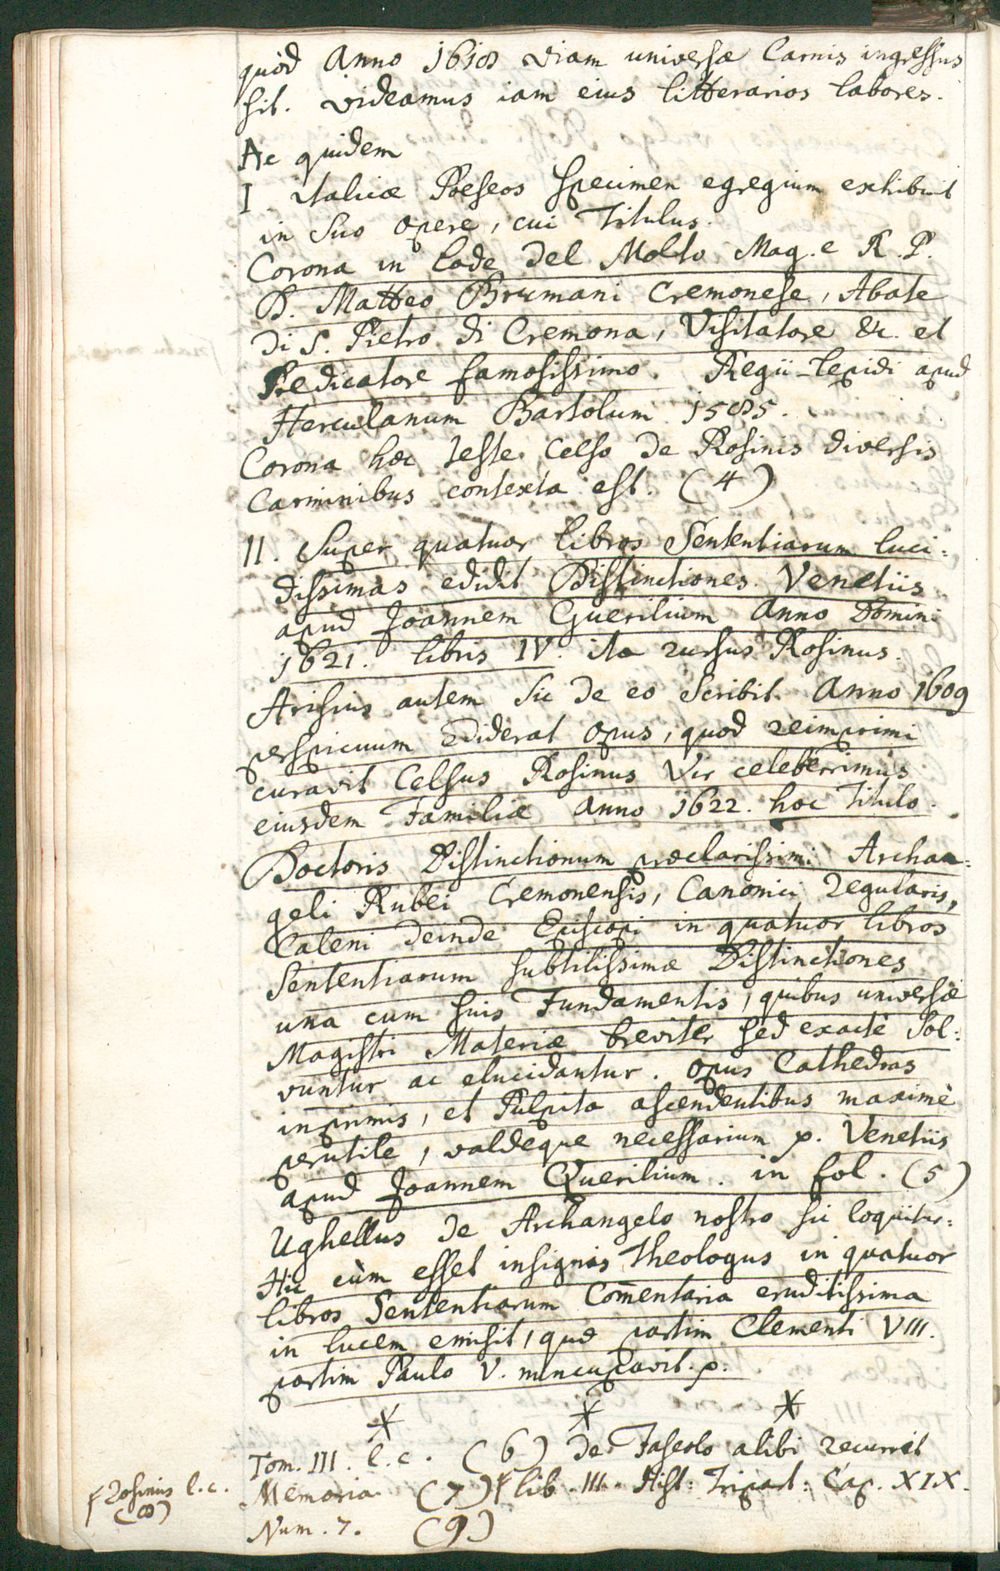 quòd Anno 1618 viam universæ Carnis ingressus
sit. Videamus iam eius litterarios labores.
Ac quidem
I Italicæ Poëseos specimen egregium exhibuit
in suo opere, cui Titulus.
Corona in lode del Molto Mag. e R. P.
D. Matteo Brumani Cremonese, Abate
di S. Pietro di Cremona, Visitatore &c. et
Predicatore famosissimo. Regii-Lepidi apud
Herculanum Bartolum 1585.
Corona hæc teste Celso de Rosinis diversis
Carminibus contexta est. (4)
II. Super quatuor libros Sententiarum luci:
dissimas edidit Distinctiones Venetiis
apud Joannem Guerilium Anno Domini
1621. libris IV. ita rursus Rosinus.
Arisius autem sic de eo scribit. Anno 1609
perspicuum ediderat opus, quod reimprimi
curavit Celsus Rosinus Vir celeberrimus
eiusdem Familiæ Anno 1622. hoc Titulo.
Doctoris Distinctionum præclarissimi Archan:
geli Rubei Cremonensis, Canonici Regularis,
Caleni deinde Episcopi in quatuor libros
Sententiarum subtilissimæ Distinctiones
una cum suis Fundamentis, quibus universæ
Magistri Materiæ breviter sed exactè sol:
vuntur ac elucidantur. Opus Cathedras
inprimis, et Pulpita ascendentibus maximè
perutile, valdeque necessarium p. Venetiis
apud Joannem Querilium. in fol. (5)
Ughellus de Archangelo nostro sic loquitur:
Hic cùm esset insignis Theologus in quatuor
libros Sententiarum Com̄entaria eruditissima
in lucem emisit, quæ partim Clementi VIII.
partim Paulo V. nuncupavit. p.
* * *
Tom. III. l. c. (6) de Faseolo alibi recurret
Memoria (7) ⸗ lib. III. Hist: Tripart: Cap. XIX.
⸗ Rosinus l. c.
(8)
Num. 7. (9)